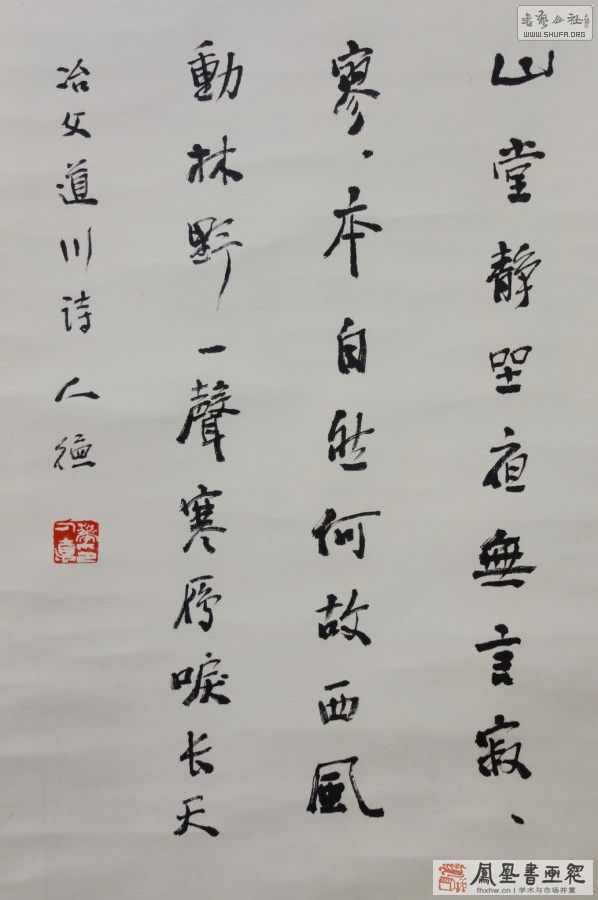 山堂靜坐夜無言寂、
寥、本自然何故西風
動林野一聲寒雁唳长天
冶父道川诗 人德
書藝公社
WWW.SHUFA.ORG
鳳凰書画網
fhxhw.cn | 学术与市场并重